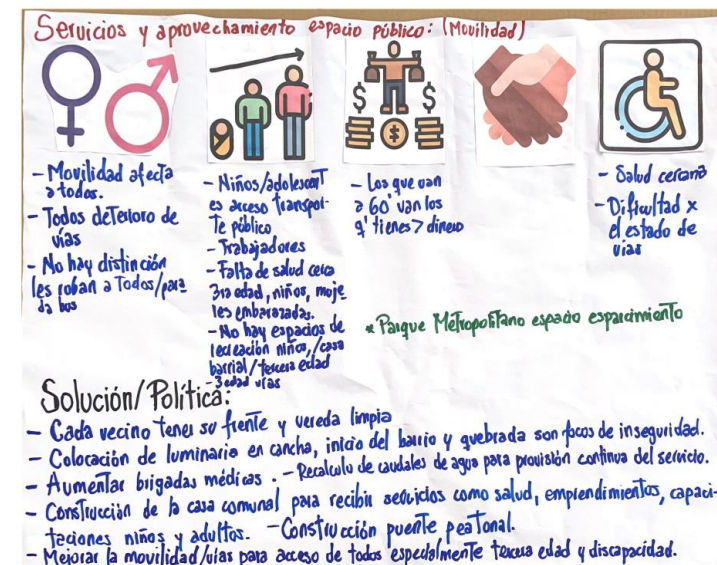 Servicios y aprovechamiento espacio público: (Movilidad)
- Movilidad afecta
a todos.
- Todos deterioro de
vías
- No hay distinción
les roban a Todos/para
da bus
- Niños/adolescent
es acceso transpor-
te público
- Trabajadores
- Falta de salud cerca
3ra edad, niños, muje
res embarazadas.
- No hay espacios de
recreación niños,/casa
barrial/tercera edad
- 3 edad vías
- Los que van
a 60' van los
q' tienes > dinero
- Salud cercana
- Dificultad x
el estado de
vías
* Parque Metropolitano espacio esparcimiento
Solución/Política:
- Cada vecino tener su frente y vereda limpia
- Colocación de luminaria en cancha, inicio del barrio y quebrada son focos de inseguridad.
- Aumentar brigadas médicas. - Recalculo de caudales de agua para provisión continua del servicio.
- Construcción de la casa comunal para recibir servicios como salud, emprendimientos, capaci-
taciones niños y adultos. - Construcción puente peatonal.
- Mejorar la movilidad/vías para acceso de todos especialmente tercera edad y discapacidad.